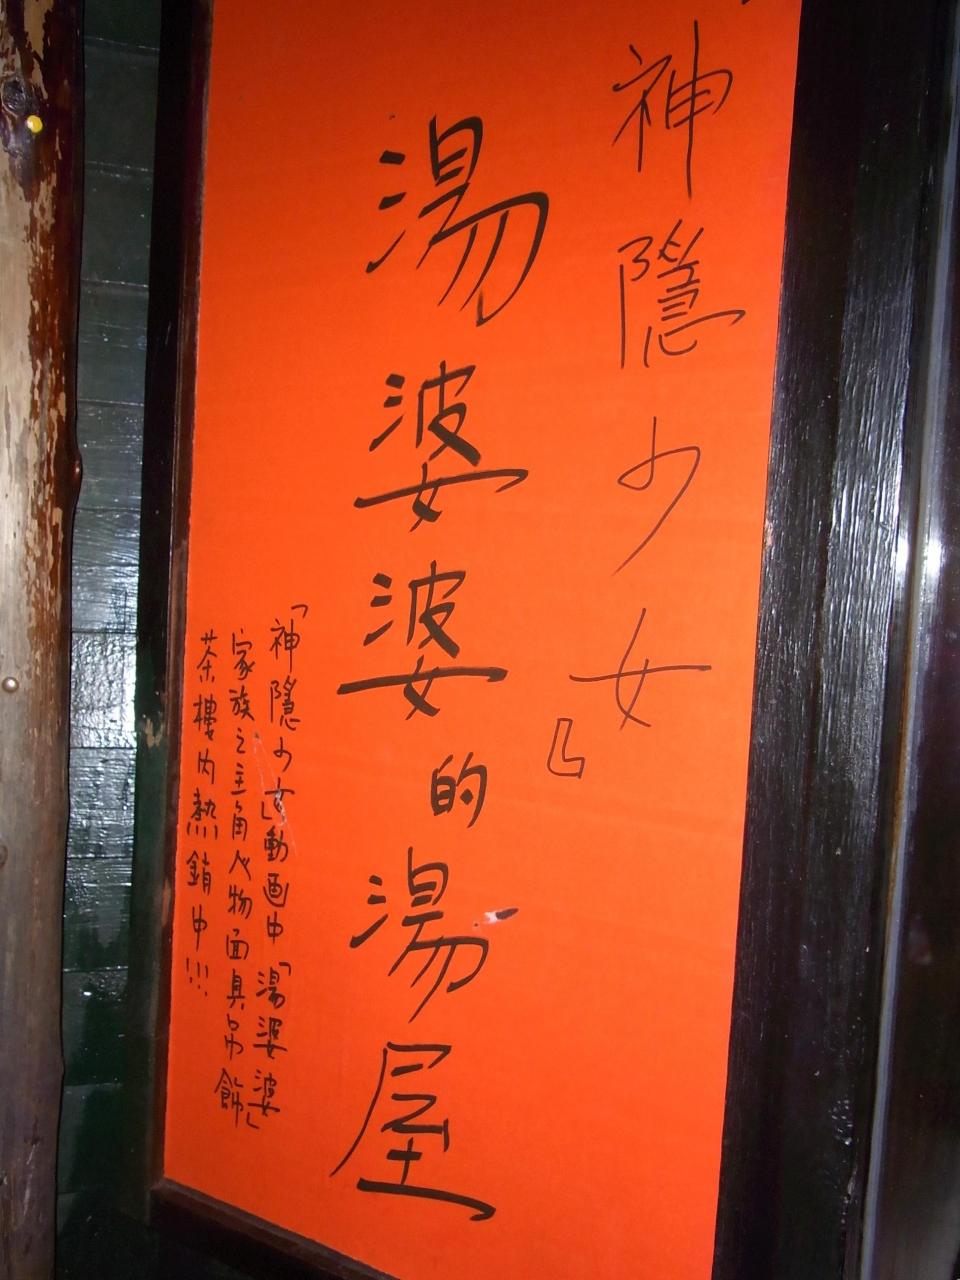 神隱少女』
湯婆婆的湯屋
「神隱少女」動画中「湯婆婆」
家族之主角人物面具吊飾
茶樓內熱銷中!!!